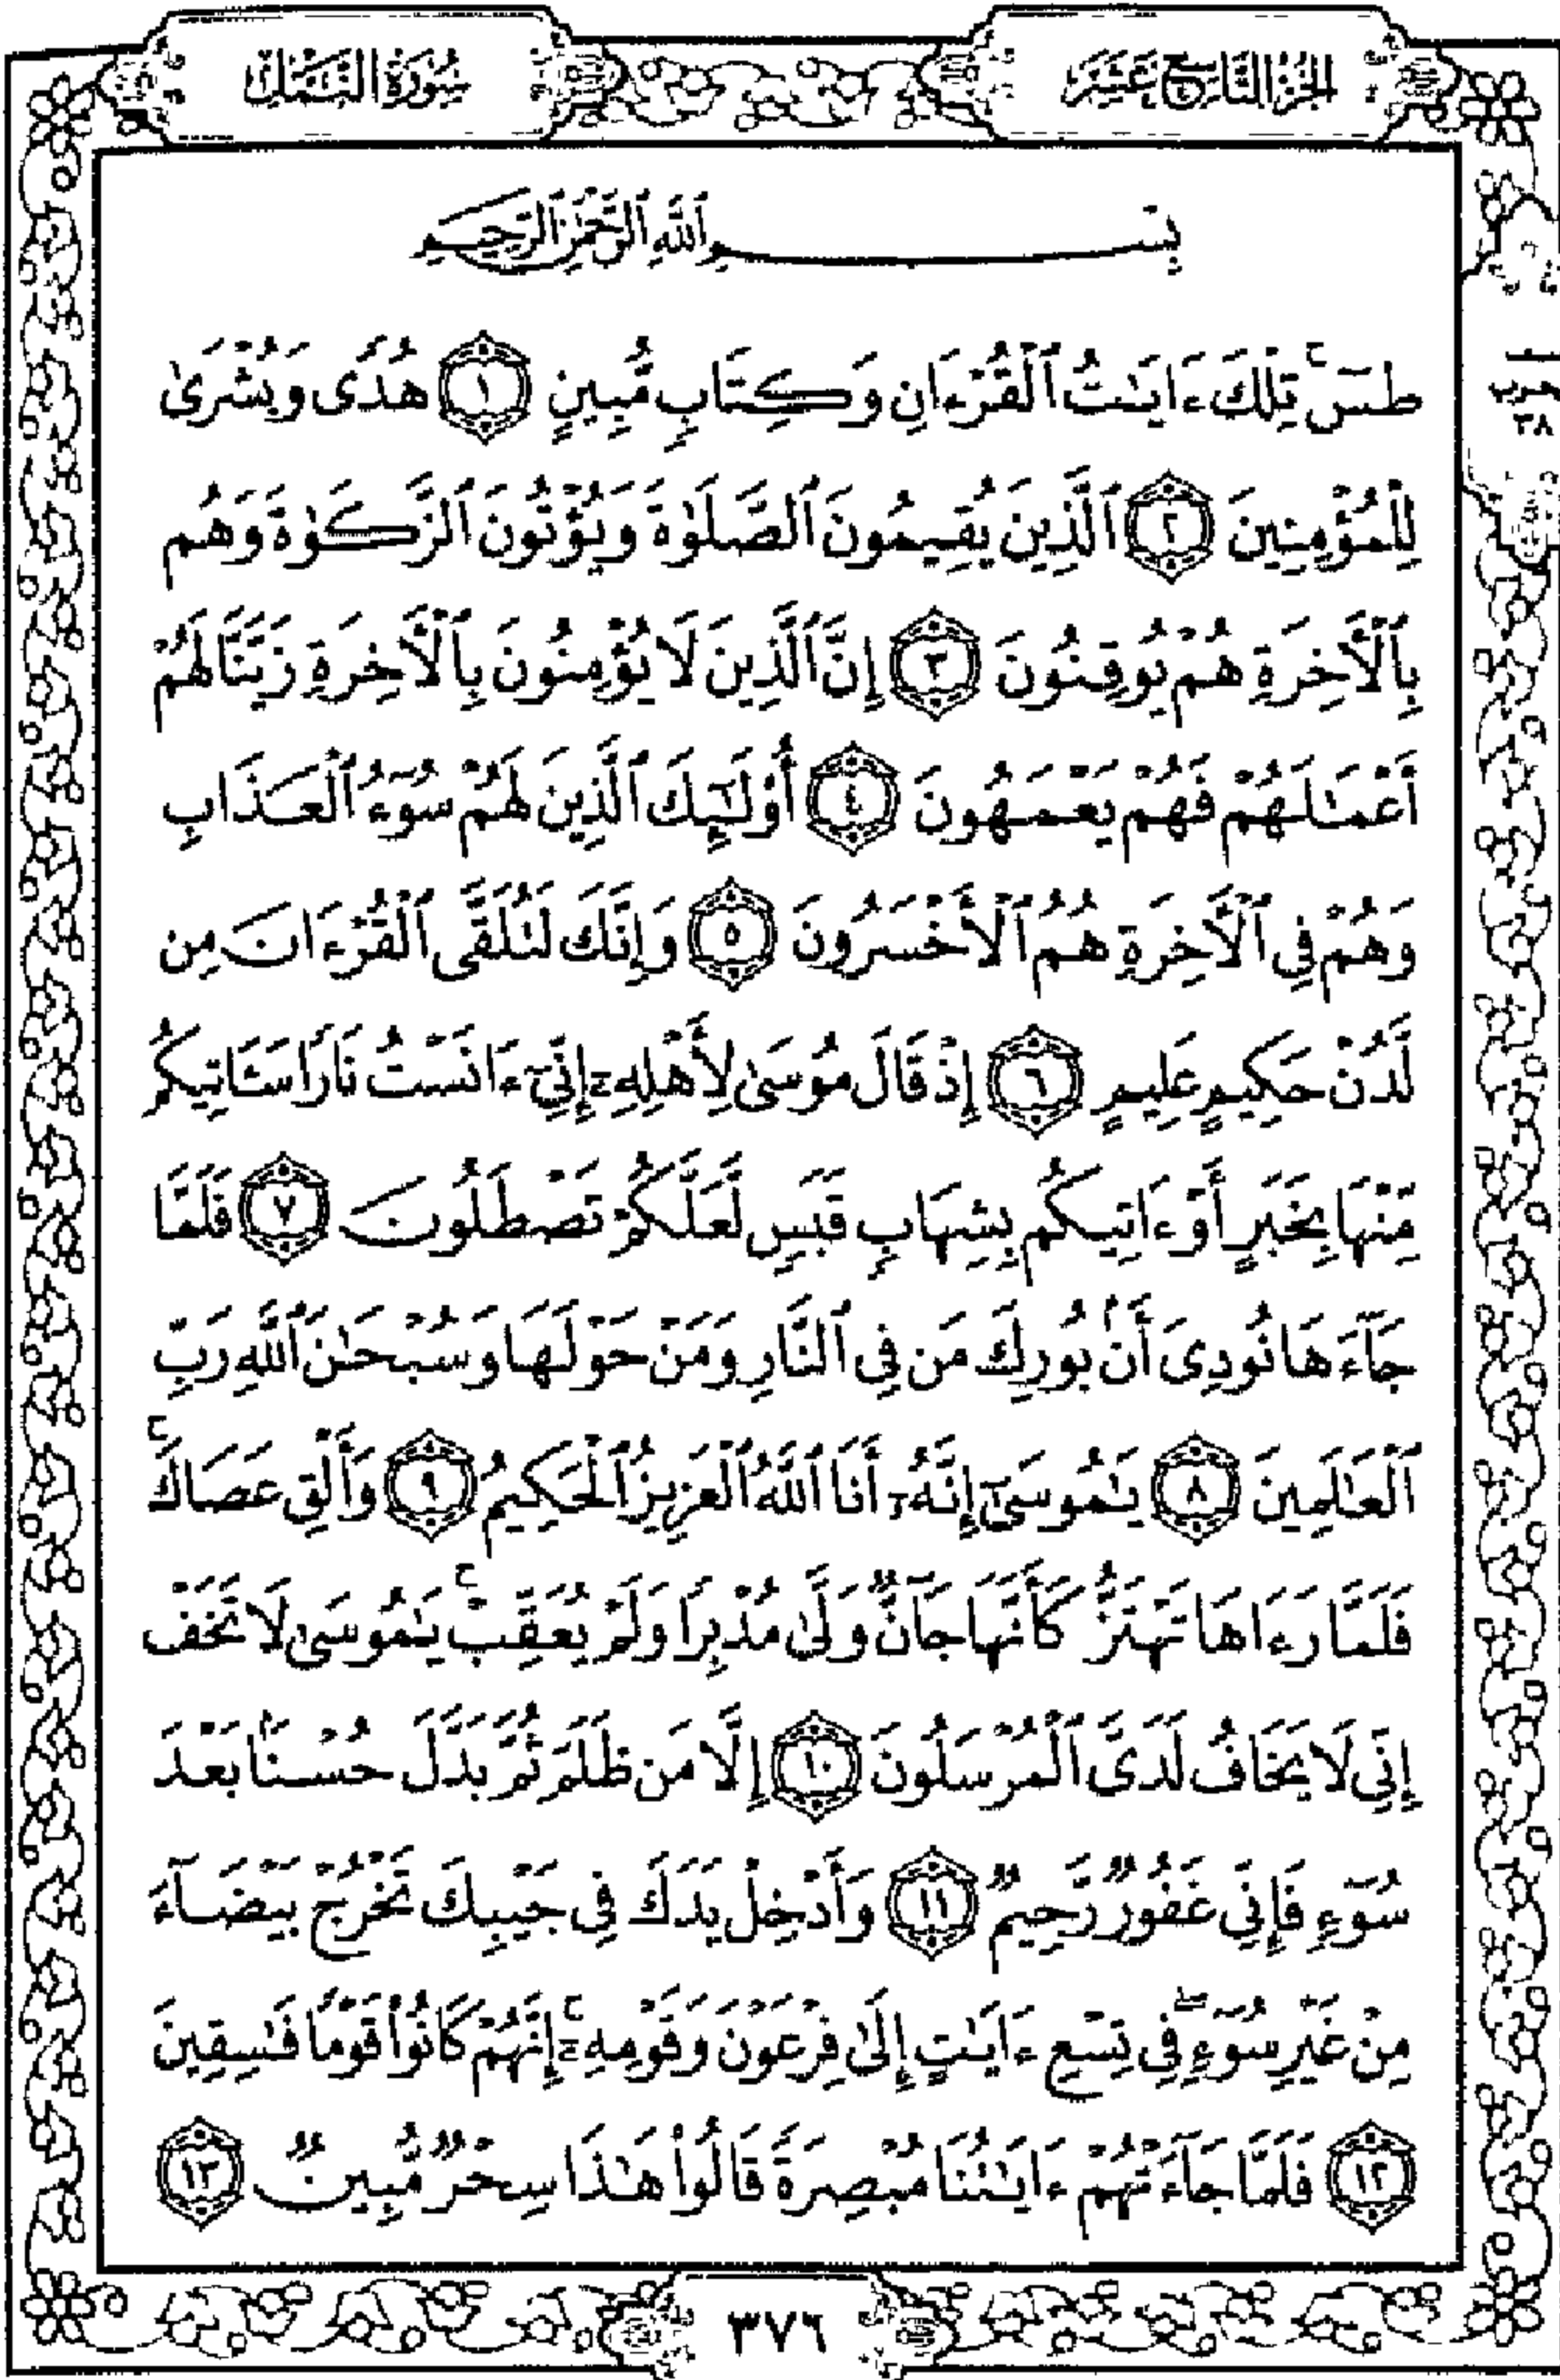 الجزء التاسع عشر
سورة النمل
بِسْمِ ٱللَّهِ ٱلرَّحْمَٰنِ ٱلرَّحِيمِ
طسٓ ۚ تِلْكَ ءَايَٰتُ ٱلْقُرْءَانِ وَكِتَابٍ مُّبِينٍ ١ هُدًى وَبُشْرَىٰ
لِلْمُؤْمِنِينَ ٢ ٱلَّذِينَ يُقِيمُونَ ٱلصَّلَوٰةَ وَيُؤْتُونَ ٱلزَّكَوٰةَ وَهُم
بِٱلْأَخِرَةِ هُمْ يُوقِنُونَ ٣ إِنَّ ٱلَّذِينَ لَا يُؤْمِنُونَ بِٱلْأَخِرَةِ زَيَّنَّا لَهُمْ
أَعْمَٰلَهُمْ فَهُمْ يَعْمَهُونَ ٤ أُوْلَٰٓئِكَ ٱلَّذِينَ لَهُمْ سُوٓءُ ٱلْعَذَابِ
وَهُمْ فِي ٱلْأَخِرَةِ هُمُ ٱلْأَخْسَرُونَ ٥ وَإِنَّكَ لَتُلَقَّى ٱلْقُرْءَانَ مِن
لَّدُنْ حَكِيمٍ عَلِيمٍ ٦ إِذْ قَالَ مُوسَىٰ لِأَهْلِهِۦٓ إِنِّيٓ ءَانَسْتُ نَارًا سَـَٔاتِيكُم
مِّنْهَا بِخَبَرٍ أَوْ ءَاتِيكُم بِشِهَابٍ قَبَسٍ لَّعَلَّكُمْ تَصْطَلُونَ ٧ فَلَمَّا
جَآءَهَا نُودِىَ أَنۢ بُورِكَ مَن فِي ٱلنَّارِ وَمَنْ حَوْلَهَا وَسُبْحَٰنَ ٱللَّهِ رَبِّ
ٱلْعَٰلَمِينَ ٨ يَٰمُوسَىٰٓ إِنَّهُۥٓ أَنَا ٱللَّهُ ٱلْعَزِيزُ ٱلْحَكِيمُ ٩ وَأَلْقِ عَصَاكَ ۚ
فَلَمَّا رَءَاهَا تَهْتَزُّ كَأَنَّهَا جَآنٌّ وَلَّىٰ مُدْبِرًا وَلَمْ يُعَقِّبْ ۚ يَٰمُوسَىٰ لَا تَخَفْ
إِنِّي لَا يَخَافُ لَدَىَّ ٱلْمُرْسَلُونَ ١٠ إِلَّا مَن ظَلَمَ ثُمَّ بَدَّلَ حُسْنًۢا بَعْدَ
سُوٓءٍ فَإِنِّي غَفُورٌ رَّحِيمٌ ١١ وَأَدْخِلْ يَدَكَ فِي جَيْبِكَ تَخْرُجْ بَيْضَآءَ
مِنْ غَيْرِ سُوٓءٍ ۖ فِي تِسْعِ ءَايَٰتٍ إِلَىٰ فِرْعَوْنَ وَقَوْمِهِۦٓ ۚ إِنَّهُمْ كَانُوا۟ قَوْمًا فَٰسِقِينَ
١٢ فَلَمَّا جَآءَتْهُمْ ءَايَٰتُنَا مُبْصِرَةً قَالُوا۟ هَٰذَا سِحْرٌ مُّبِينٌ ١٣
٣٧٦